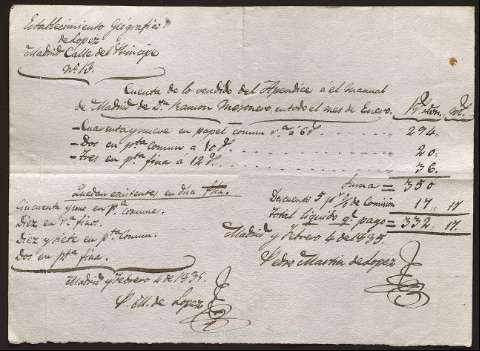 Establecimiento Geográfico
de Lopez
Madrid Calle del Principe
nº. 13.
Cuenta de lo vendido del Apendice a el manual
de Madrid de Dn. Ramon Mesonero en todo el mes de Enero.
- Cuarenta y nueve en papel comun ra a 6 rs. 294.
- Dos en pta comun a 10 rs. 20.
- Tres en pta fina a 12 rs. 36.
Suma = 350
Descuento 5 p% de Comision 17. 17
total liquido qe pago = 332. 17.
Madrid y Febrero 4 de 1835.
Pedro Martin de Lopez
Quedan existentes en dicha
Cincuenta y uno en pa. comunes.
Diez en ra. fino.
Diez y siete en pta. Comun.
Dos en pta fina.
Madrid y Febrero 4 de 1835.
P. M. de Lopez